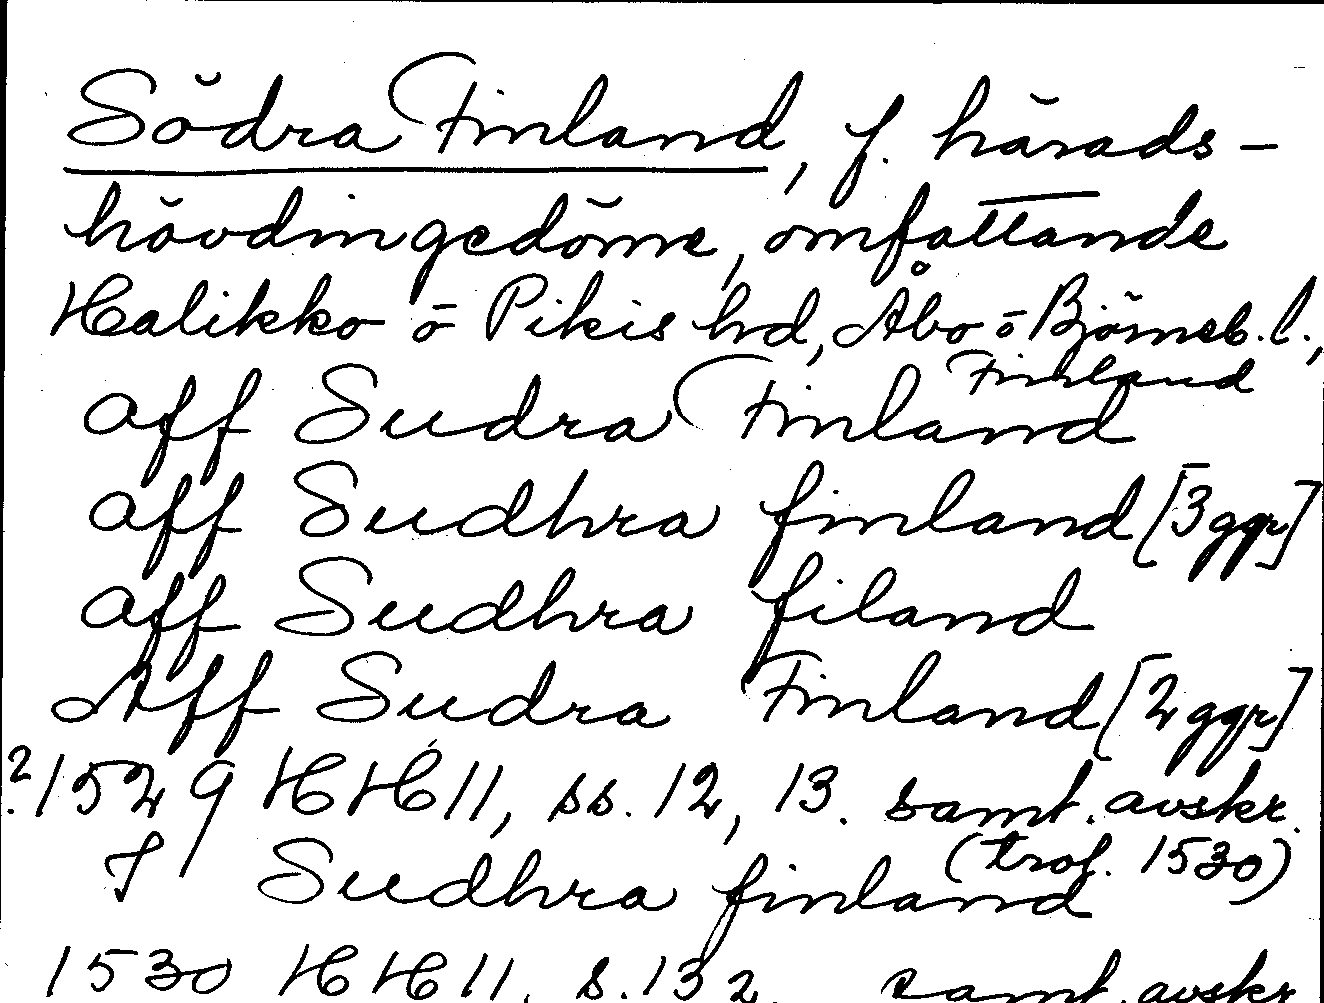 Södra Finland, f. härads-
hövdingedöme, omfattande
Halikko o Pikis hd, Åbo o Björneb. l.,
Finland
aff Sudra Finland
aff Sudhra finland [3 ggr]
aff Sudhra filand
Aff Sudra Finland [2 ggr]
?1529 HH 11, ss. 12, 13. samt. avskr.
(trol. 1530)
J Sudhra finland
1530 HH 11, s. 132. samt. avskr.